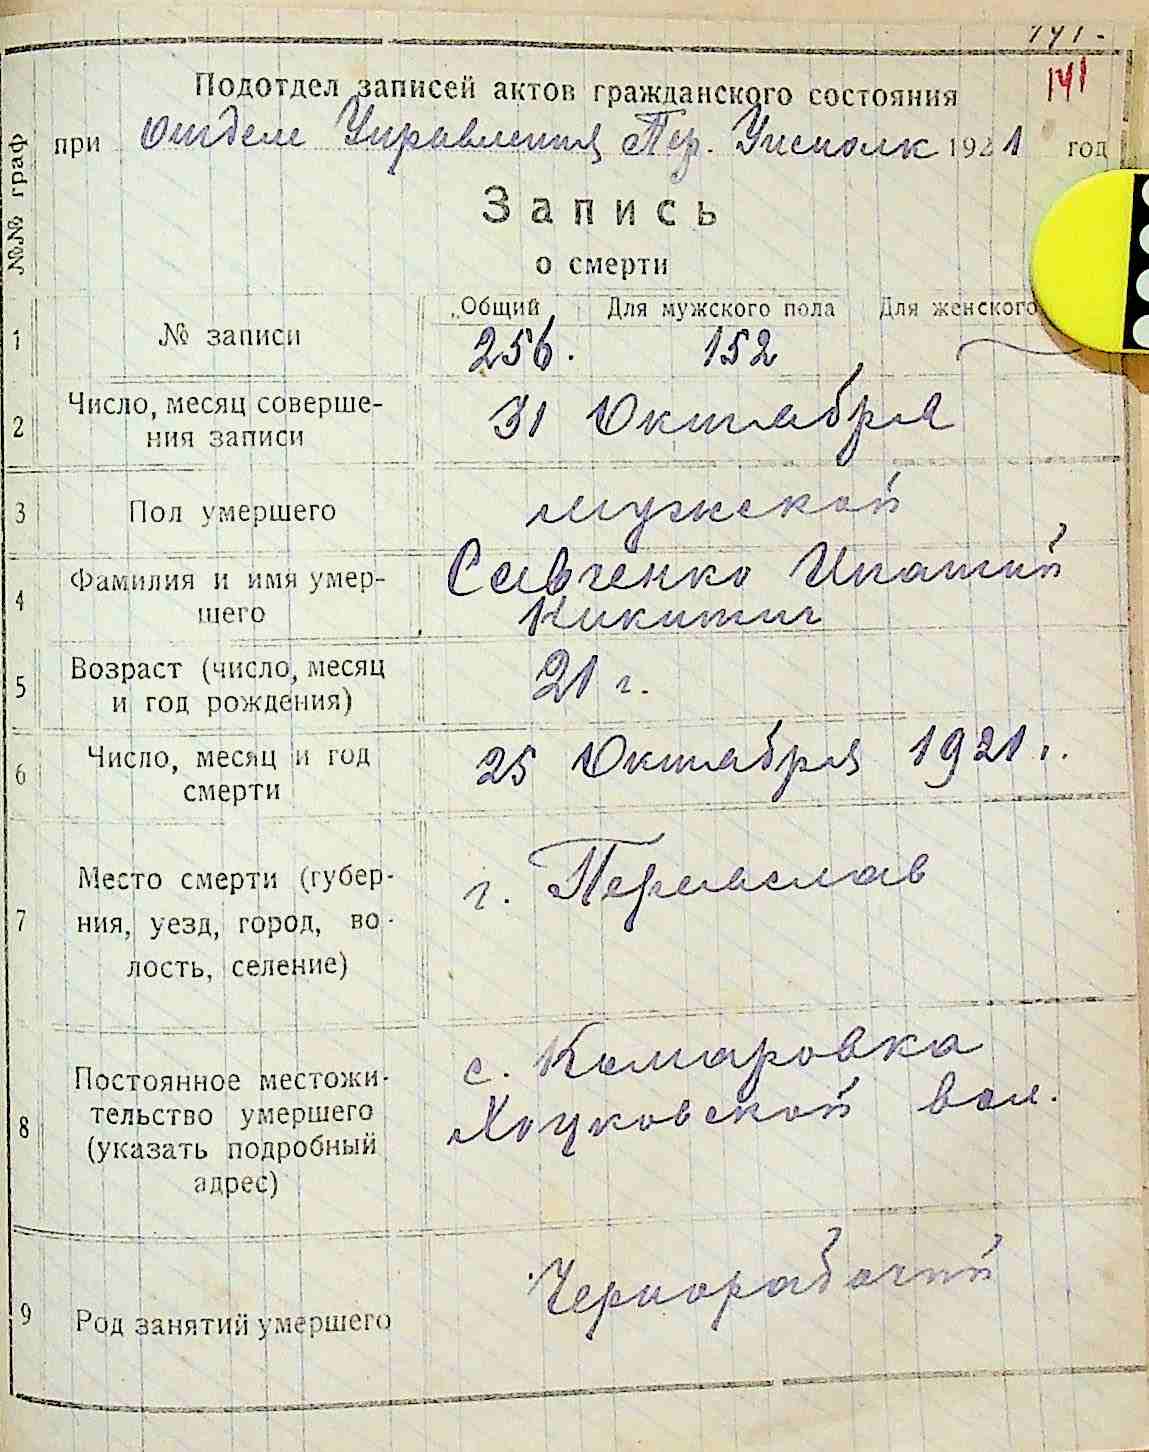 141.
141
Подотдел записей актов гражданского состояния
при Отделе Управления Пер. Уисполк 1921 год
№№ граф
Запись
о смерти
Общий Для мужского пола Для женского
1 № записи 256. 152
2 Число, месяц соверше-
ния записи 31 Октября
3 Пол умершего мужской
4 Фамилия и имя умер-
шего Савченко Ипатий
Никитич
5 Возраст (число, месяц
и год рождения) 21 г.
6 Число, месяц и год
смерти 25 Октября 1921 г.
7 Место смерти (губер-
ния, уезд, город, во-
лость, селение) г. Переяслав
8 Постоянное местожи-
тельство умершего
(указать подробный
адрес) с. Комаровка
Хоцковской вол.
9 Род занятий умершего Чернорабочий